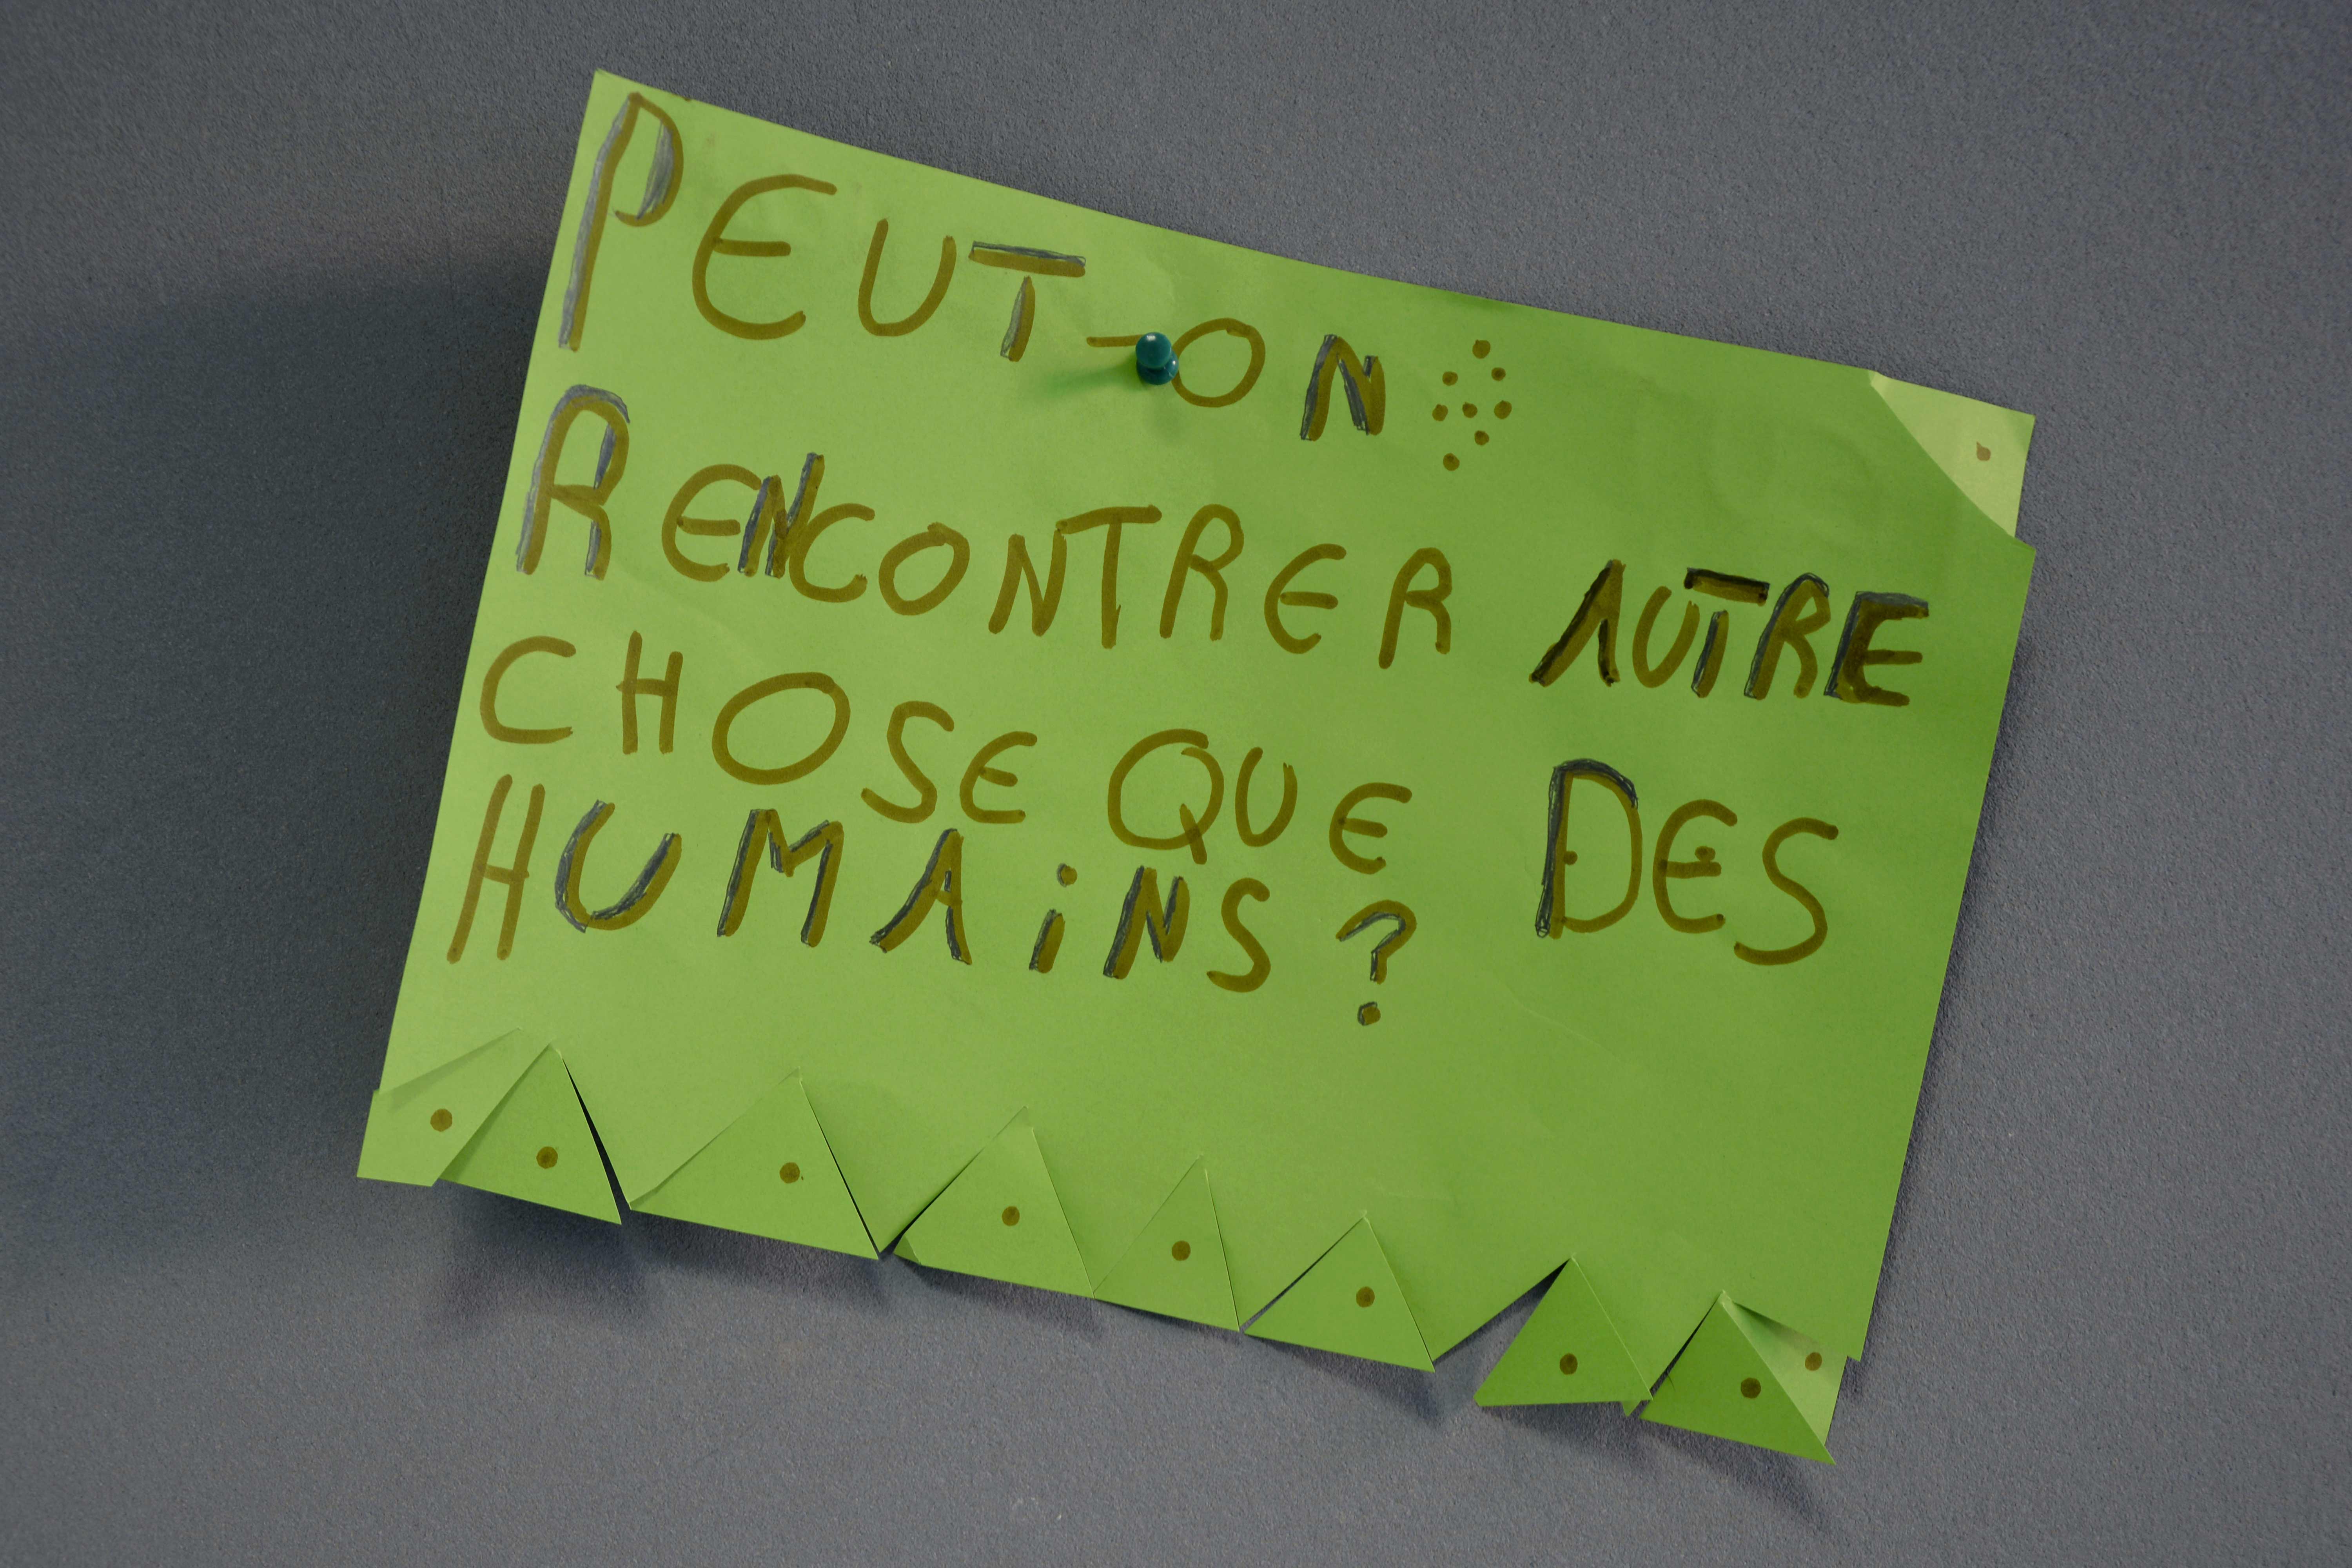 PEUT-ON
RENCONTRER AUTRE
CHOSE QUE DES
HUMAiNS ?